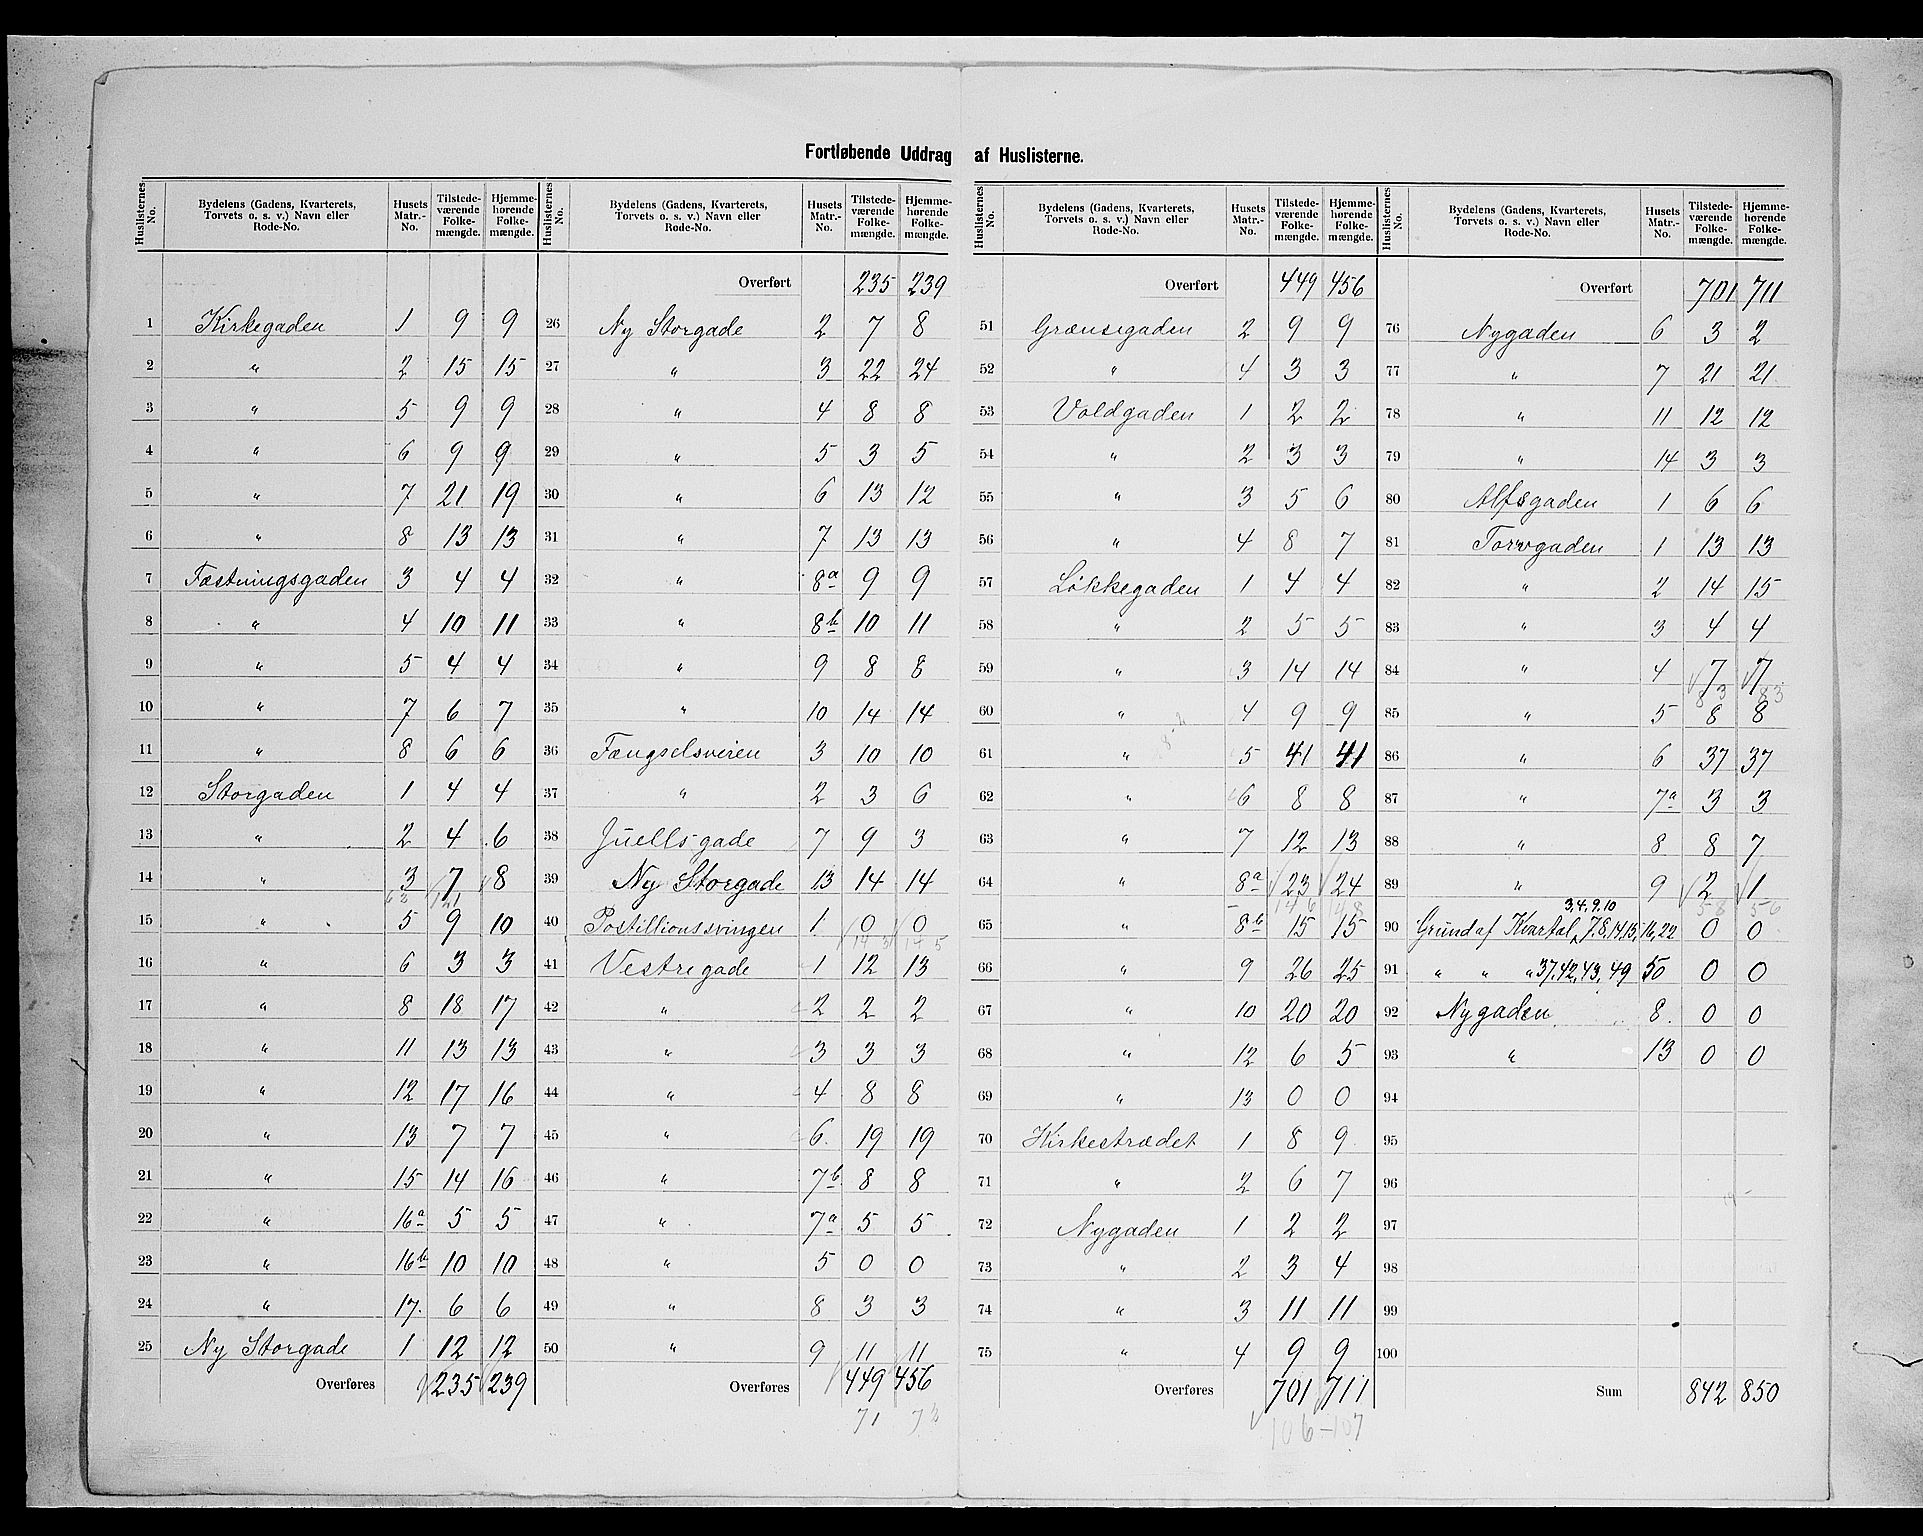 Fortløbende Uddrag af Huslisterne.
Huslisternes No. | Bydelens (Gadens, Kvarterets, Torvets o. s. v.) Navn eller Rode-No. | Husets Matr.-No. | Tilstede-værende Folke-mængde. | Hjemme-hørende Folke-mængde.
1 Kirkegaden 1 9 9
2 " 2 15 15
3 " 5 9 9
4 " 6 9 9
5 " 7 21 19
6 " 8 13 13
7 Fæstningsgaden 3 4 4
8 " 4 10 11
9 " 5 4 4
10 " 7 6 7
11 " 8 6 6
12 Storgaden 1 4 4
13 " 2 4 6
14 " 3 7 8
15 " 5 9 10
16 " 6 3 3
17 " 8 18 17
18 " 11 13 13
19 " 12 17 16
20 " 13 7 7
21 " 15 14 16
22 " 16a 5 5
23 " 16b 10 10
24 " 17. 6 6
25 Ny Storgade 1 12 12
Overføres 235 239
Huslisternes No. | Bydelens (Gadens, Kvarterets, Torvets o. s. v.) Navn eller Rode-No. | Husets Matr.-No. | Tilstede-værende Folke-mængde. | Hjemme-hørende Folke-mængde.
Overført 235 239
26 Ny Storgade 2 7 8
27 " 3 22 24
28 " 4 8 8
29 " 5 3 5
30 " 6 13 12
31 " 7 13 13
32 " 8a 9 9
33 " 8b 10 11
34 " 9 8 8
35 " 10 14 14
36 Fængselsveien 3 10 10
37 " 2 3 6
38 Juells gade 7 9 3
39 Ny Storgade 13 14 14
40 Postillionssvingen 1 0 0
41 Vestregade 1 12 13
42 " 2 2 2
43 " 3 3 3
44 " 4 8 8
45 " 6. 19 19
46 " 7b 8 8
47 " 7a 5 5
48 " 5 0 0
49 " 8 3 3
50 " 9 11 11
Overføres 449 456
71 73
Huslisternes No. | Bydelens (Gadens, Kvarterets, Torvets o. s. v.) Navn eller Rode-No. | Husets Matr.-No. | Tilstede-værende Folke-mængde. | Hjemme-hørende Folke-mængde.
Overført 449 456
51 Grænsegaden 2 9 9
52 " 4 3 3
53 Voldgaden 1 2 2
54 " 2 3 3
55 " 3 5 6
56 " 4 8 7
57 Løkkegaden 1 4 4
58 " 2 5 5
59 " 3 14 14
60 " 4 9 9
61 " 5 41 41
62 " 6 8 8
63 " 7 12 13
64 " 8a 23 24
65 " 8b 15 15
66 " 9 26 25
67 " 10 20 20
68 " 12 6 5
69 " 13 0 0
70 Kirkestrædet 1 8 9
71 " 2 6 7
72 Nygaden 1 2 2
73 " 2 3 4
74 " 3 11 11
75 " 4 9 9
Overføres 701 711
106-107
Huslisternes No. | Bydelens (Gadens, Kvarterets, Torvets o. s. v.) Navn eller Rode-No. | Husets Matr.-No. | Tilstede-værende Folke-mængde. | Hjemme-hørende Folke-mængde.
Overført 701 711
76 Nygaden 6 3 2
77 " 7 21 21
78 " 11 12 12
79 " 14 3 3
80 Alfsgaden 1 6 6
81 Torvgaden 1 13 13
82 " 2 14 15
83 " 3 4 4
84 " 4 7 7
83 83
85 " 5 8 8
86 " 6 37 37
87 " 7a 3 3
88 " 8 8 7
89 " 9 2 1
58 56
3,4,9,10
90 Grund af Kvartal 7.8,14,15, 16,22 0 0
91 " " " 37,42,43,49 50 0 0
92 Nygaden 8. 0 0
93 " 13 0 0
94
95
96
97
98
99
100
Sum 842 850